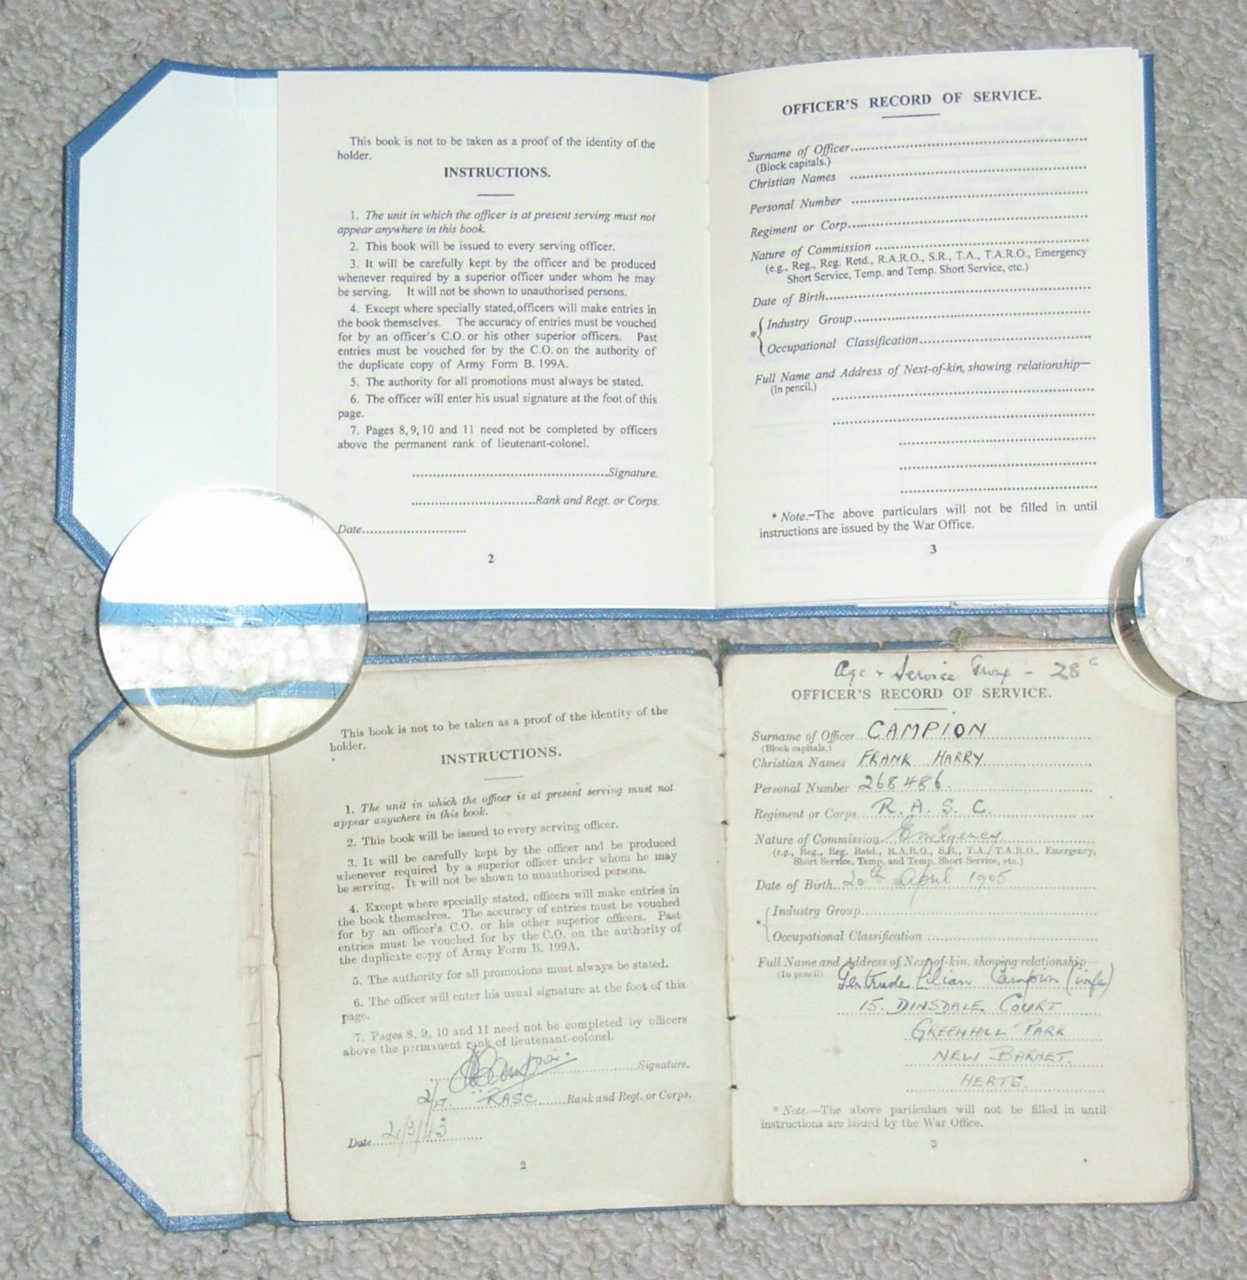 This book is not to be taken as a proof of the identity of the
holder.
INSTRUCTIONS.
1. The unit in which the officer is at present serving must not
appear anywhere in this book.
2. This book will be issued to every serving officer.
3. It will be carefully kept by the officer and be produced
whenever required by a superior officer under whom he may
be serving. It will not be shown to unauthorised persons.
4. Except where specially stated,officers will make entries in
the book themselves. The accuracy of entries must be vouched
for by an officer's C.O. or his other superior officers. Past
entries must be vouched for by the C.O. on the authority of
the duplicate copy of Army Form B. 199A.
5. The authority for all promotions must always be stated.
6. The officer will enter his usual signature at the foot of this
page.
7. Pages 8, 9, 10 and 11 need not be completed by officers
above the permanent rank of lieutenant-colonel.
Signature.
Rank and Regt. or Corps.
Date
2
OFFICER'S RECORD OF SERVICE.
Surname of Officer
(Block capitals.)
Christian Names
Personal Number
Regiment or Corp
Nature of Commission
(e.g., Reg., Reg. Retd., R.A.R.O., S.R., T.A., T.A.R.O., Emergency
Short Service, Temp. and Temp. Short Service, etc.)
Date of Birth
* Industry Group
Occupational Classification
Full Name and Address of Next-of-kin, showing relationship—
(In pencil.)
* Note.—The above particulars will not be filled in until
instructions are issued by the War Office.
3
This book is not to be taken as a proof of the identity of the
holder.
INSTRUCTIONS.
1. The unit in which the officer is at present serving must not
appear anywhere in this book.
2. This book will be issued to every serving officer.
3. It will be carefully kept by the officer and be produced
whenever required by a superior officer under whom he may
be serving. It will not be shown to unauthorised persons.
4. Except where specially stated, officers will make entries in
the book themselves. The accuracy of entries must be vouched
for by an officer's C.O. or his other superior officers. Past
entries must be vouched for by the C.O. on the authority of
the duplicate copy of Army Form B. 199A.
5. The authority for all promotions must always be stated.
6. The officer will enter his usual signature at the foot of this
page.
7. Pages 8, 9, 10 and 11 need not be completed by officers
above the permanent rank of lieutenant-colonel.
Campion Signature.
2/Lt. RASC Rank and Regt. or Corps.
Date 2/3/43
2
Age & Service Group - 28 c
OFFICER'S RECORD OF SERVICE.
Surname of Officer CAMPION
(Block capitals.)
Christian Names FRANK HARRY
Personal Number 268486.
Regiment or Corps R.A.S.C.
Nature of Commission Emergency
(e.g., Reg., Reg. Retd., R.A.R.O., S.R., T.A., T.A.R.O., Emergency,
Short Service, Temp. and Temp. Short Service, etc.)
Date of Birth 20th April 1905
* Industry Group
Occupational Classification
Full Name and Address of Next-of-kin, showing relationship—
(In pencil) Gertrude Lilian Campion (wife)
15. DINSDALE COURT
GREENHILL PARK
NEW BARNET.
HERTS.
* Note.—The above particulars will not be filled in until
instructions are issued by the War Office.
3